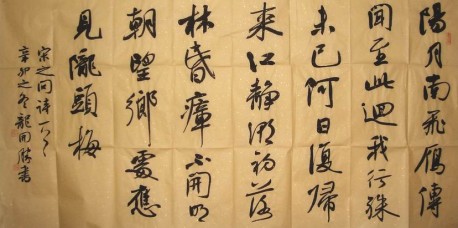 陽月南飛雁傳
聞至此迴我行殊
未已何日復歸
來江靜潮初落
林昏瘴不開明
朝望鄉處應
見隴頭梅
宋之问诗一首
辛卯之冬龍開勝書